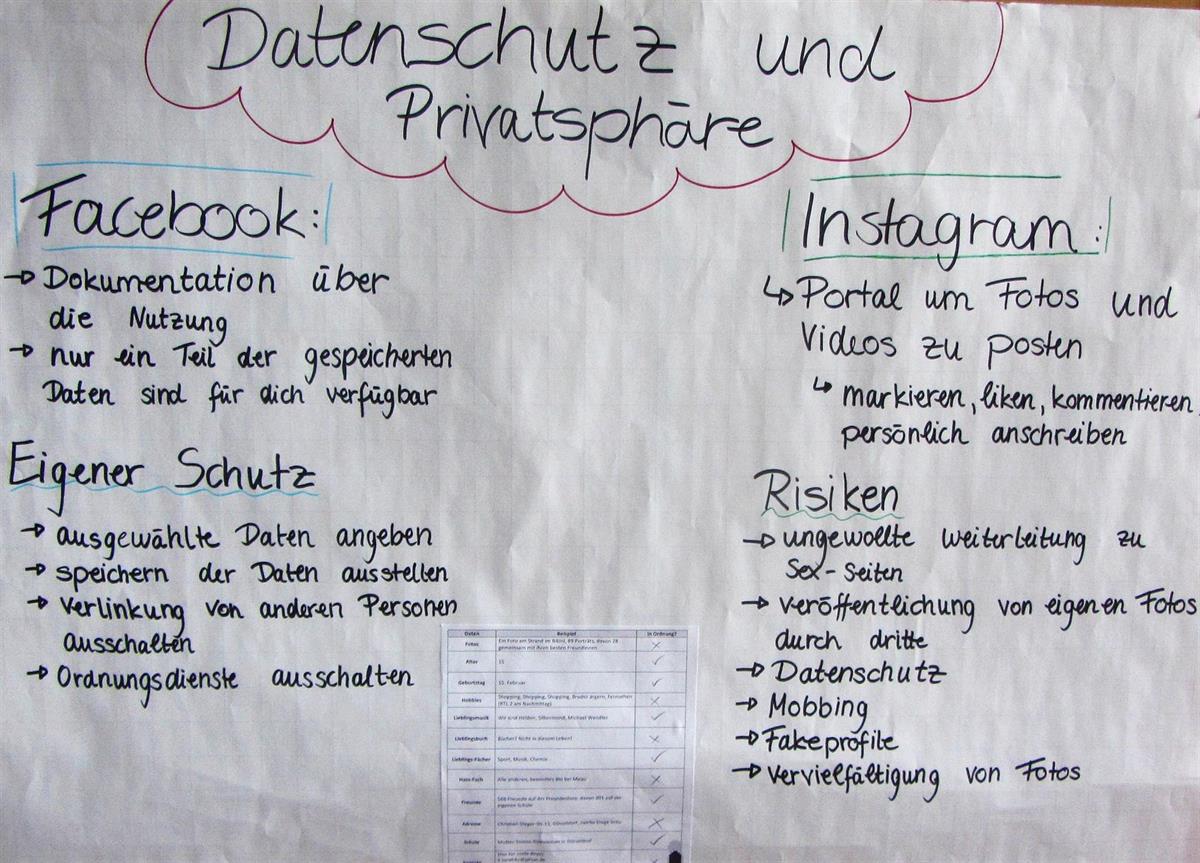 Datenschutz und
Privatsphäre
Facebook:
→ Dokumentation über
die Nutzung
→ nur ein Teil der gespeicherten
Daten sind für dich verfügbar
Eigener Schutz
→ ausgewählte Daten angeben
→ speichern der Daten ausstellen
→ Verlinkung von anderen Personen
ausschalten
→ Ordnungsdienste ausschalten
Instagram:
↳ Portal um Fotos und
Videos zu posten
↳ markieren, liken, kommentieren
persönlich anschreiben
Risiken
→ ungewollte weiterleitung zu
Sex-Seiten
→ veröffentlichung von eigenen Fotos
durch dritte
→ Datenschutz
→ Mobbing
→ Fakeprofile
→ vervielfältigung von Fotos
Daten Beispiel In Ordnung?
Fotos Ein Foto am Strand im Bikini, 89 Porträts, davon 28
gemeinsam mit ihren besten Freundinnen
Alter 15
Geburtstag 10. Februar
Hobbies Shopping, Shopping, Shopping, Bruder ärgern, Fernsehen
(RTL 2 am Nachmittag)
Lieblingsmusik Wir sind Helden, Silbermond, Michael Wendler
Lieblingsbuch Bücher? Nicht in diesem Leben!
Lieblings-Fächer Sport, Musik, Chemie
Hass-Fach Alle anderen, besonders Bio bei
Freunde 588 Freunde auf der Freundesliste, davon 201 auf der
eigenen Schule
Adresse
Schule